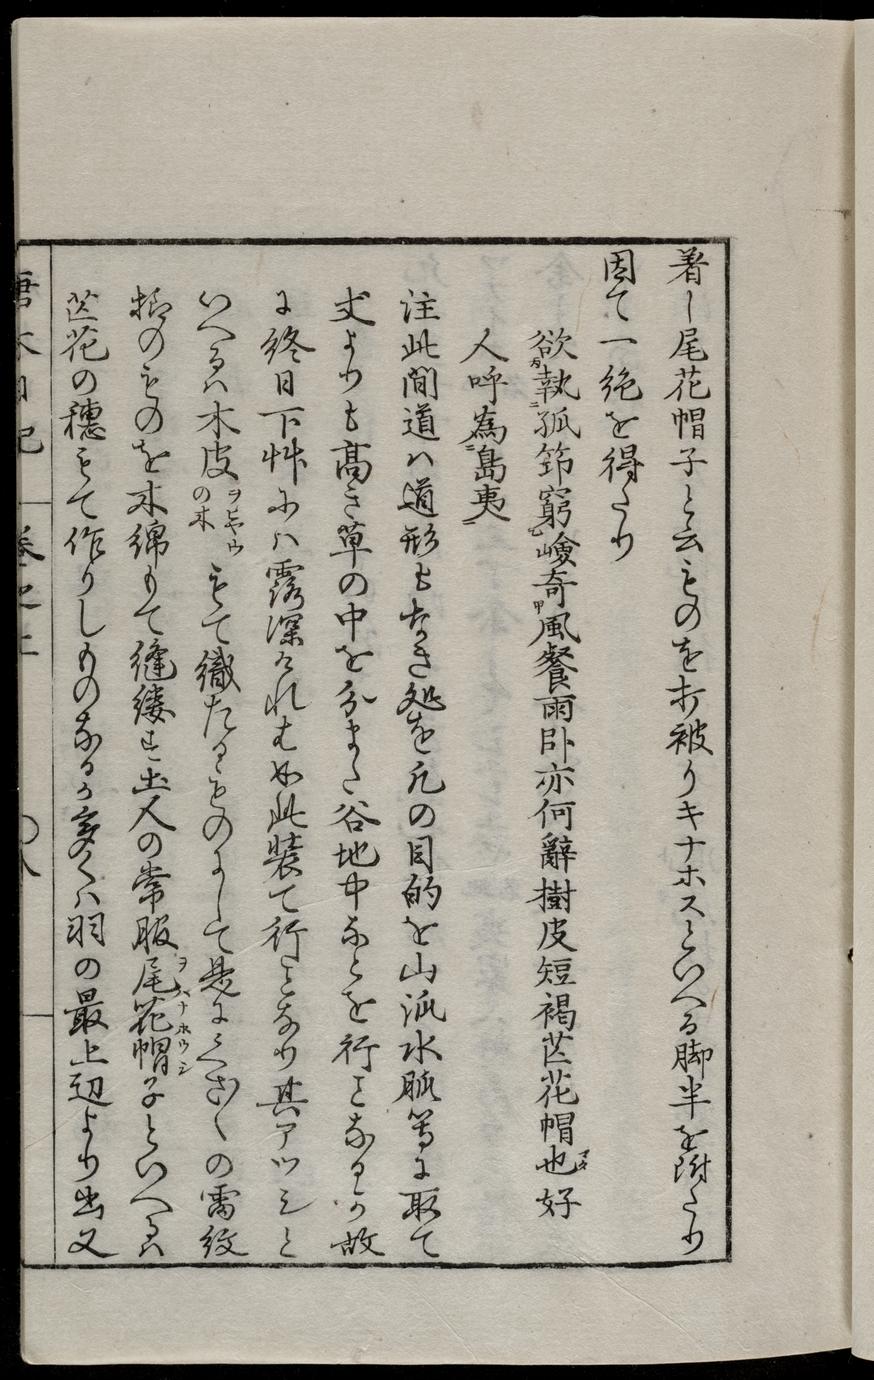 着し尾花帽子と云ものを打被りキナホスといへる脚半を附たり
因て一絶を得たり
欲執孤筇窮嶮奇風餐雨卧亦何辭樹皮短褐芒花帽也好
人呼為島夷
注此間道ハ道形もなき処を凡の目的を山派水脈等に取て
丈よりも高き草の中を分また谷地中なとを行ことなるか故
に終日下艸ふハ露深けれむ如此装て行ことなり其アツシと
いへるハ木皮ヲヒヤウの木もて織たるものよして是に
の雷紋
栲のものを木綿もて縫縷す土人の常服尾花帽子ヲバナホウシといへるハ
芒花の穗もて作りしものなるか多くハ羽の最上辺より出又
唐太日記 巻之上 〇八